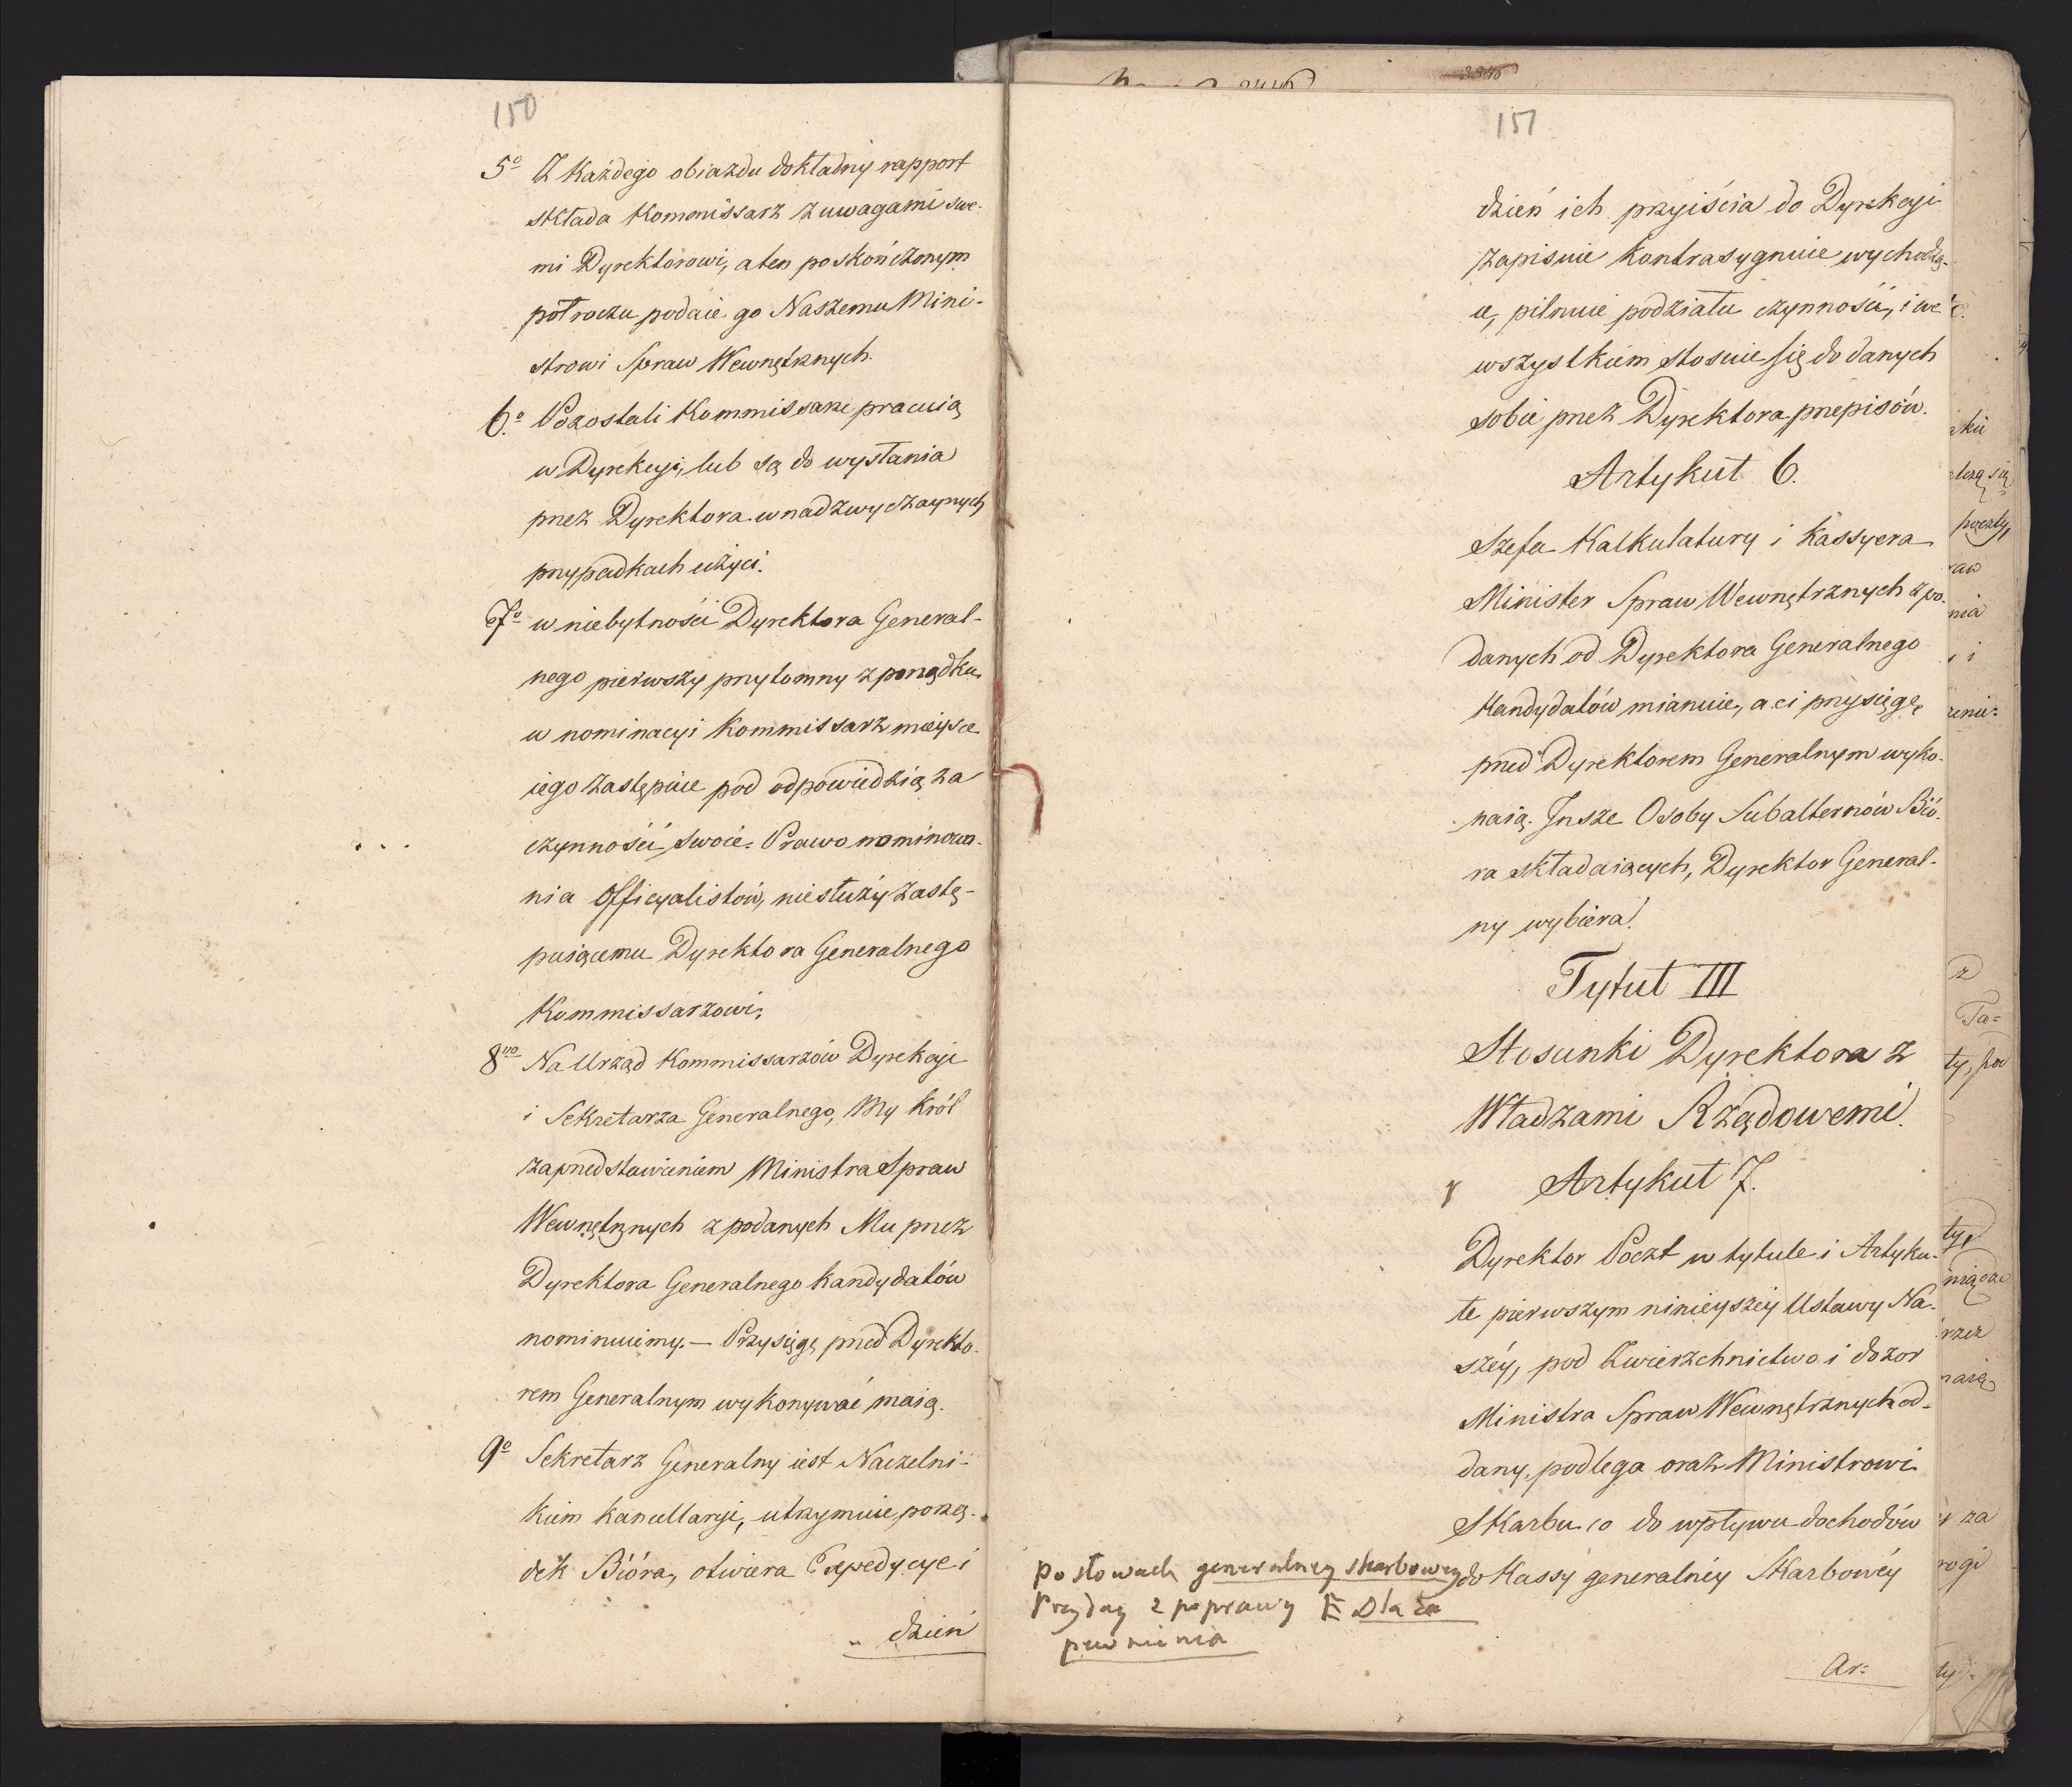 150
5º Z każdego obiazdu dokładny rapport
składa Kommissarz z uwagami swe-
mi Dyrektorowi, a ten po skończonym
półroczu podaie go Naszemu Mini-
strowi Spraw Wewnętrznych.
6.º Pozostali Kommissarze pracuią
w Dyrekcyi, lub są do wysłania
przez Dyrektora w nadzwyczaynych
przypadkach użyci.
7º w niebytności Dyrektora General-
nego pierwszy przytomny z porządku
w nominacyi Kommissarz mieysce
iego zastępuie pod odpowiedzią za
czynności swoie. Prawo nominowa-
nia Officyalistów, nie służy zastę-
puiącemu Dyrektora Generalnego
Kommissarzowi.
8vo Na Urząd Kommissarzów Dyrekcyi
i Sekretarza Generalnego, My Król
za przedstawieniem Ministra Spraw
Wewnętrznych z podanych Mu przez
Dyrektora Generalnego kandydatów
nominuiemy. — Przysięgę przed Dyrekto-
rem Generalnym wykonywać maią.
9º Sekretarz Generalny iest Naczelni-
kiem kancellaryi, utrzymuie porzą-
dek Bióra, otwiera Expedycye i
dzień
151
dzień ich przyiścia do Dyrekcyi
zapisuie kontrasygnuie wychodzą-
ce, pilnuie podziału czynności, i we
wszystkiem stosuie się do danych
sobie przez Dyrektora przepisów.
Artykuł 6.
Szefa Kalkulatury i Kassyera
Minister Spraw Wewnętrznych z po-
danych od Dyrektora Generalnego
Kandydatów mianuie, a ci przysięgę
przed Dyrektorem Generalnym wyko-
naią. Insze Osoby Subalternów Bió-
ra składaiących, Dyrektor General-
ny wybiera.
Tytuł III
Stosunki Dyrektora z
Władzami Rządowemi.
Artykuł 7.
Dyrektor Poczt w tytule i Artyku-
le pierwszym ninieyszéy Ustawy Na-
széy, pod Zwierzchnictwo i dozor
Ministra Spraw Wewnętrznych od-
dany, podlega oraz Ministrowi
Skarbu co do wpływu dochodów
do Kassy generalnéy Skarbowéy
Po słowach generalney skarbowey
Przyday z poprawy E Dla za
pewnienia
Ar: